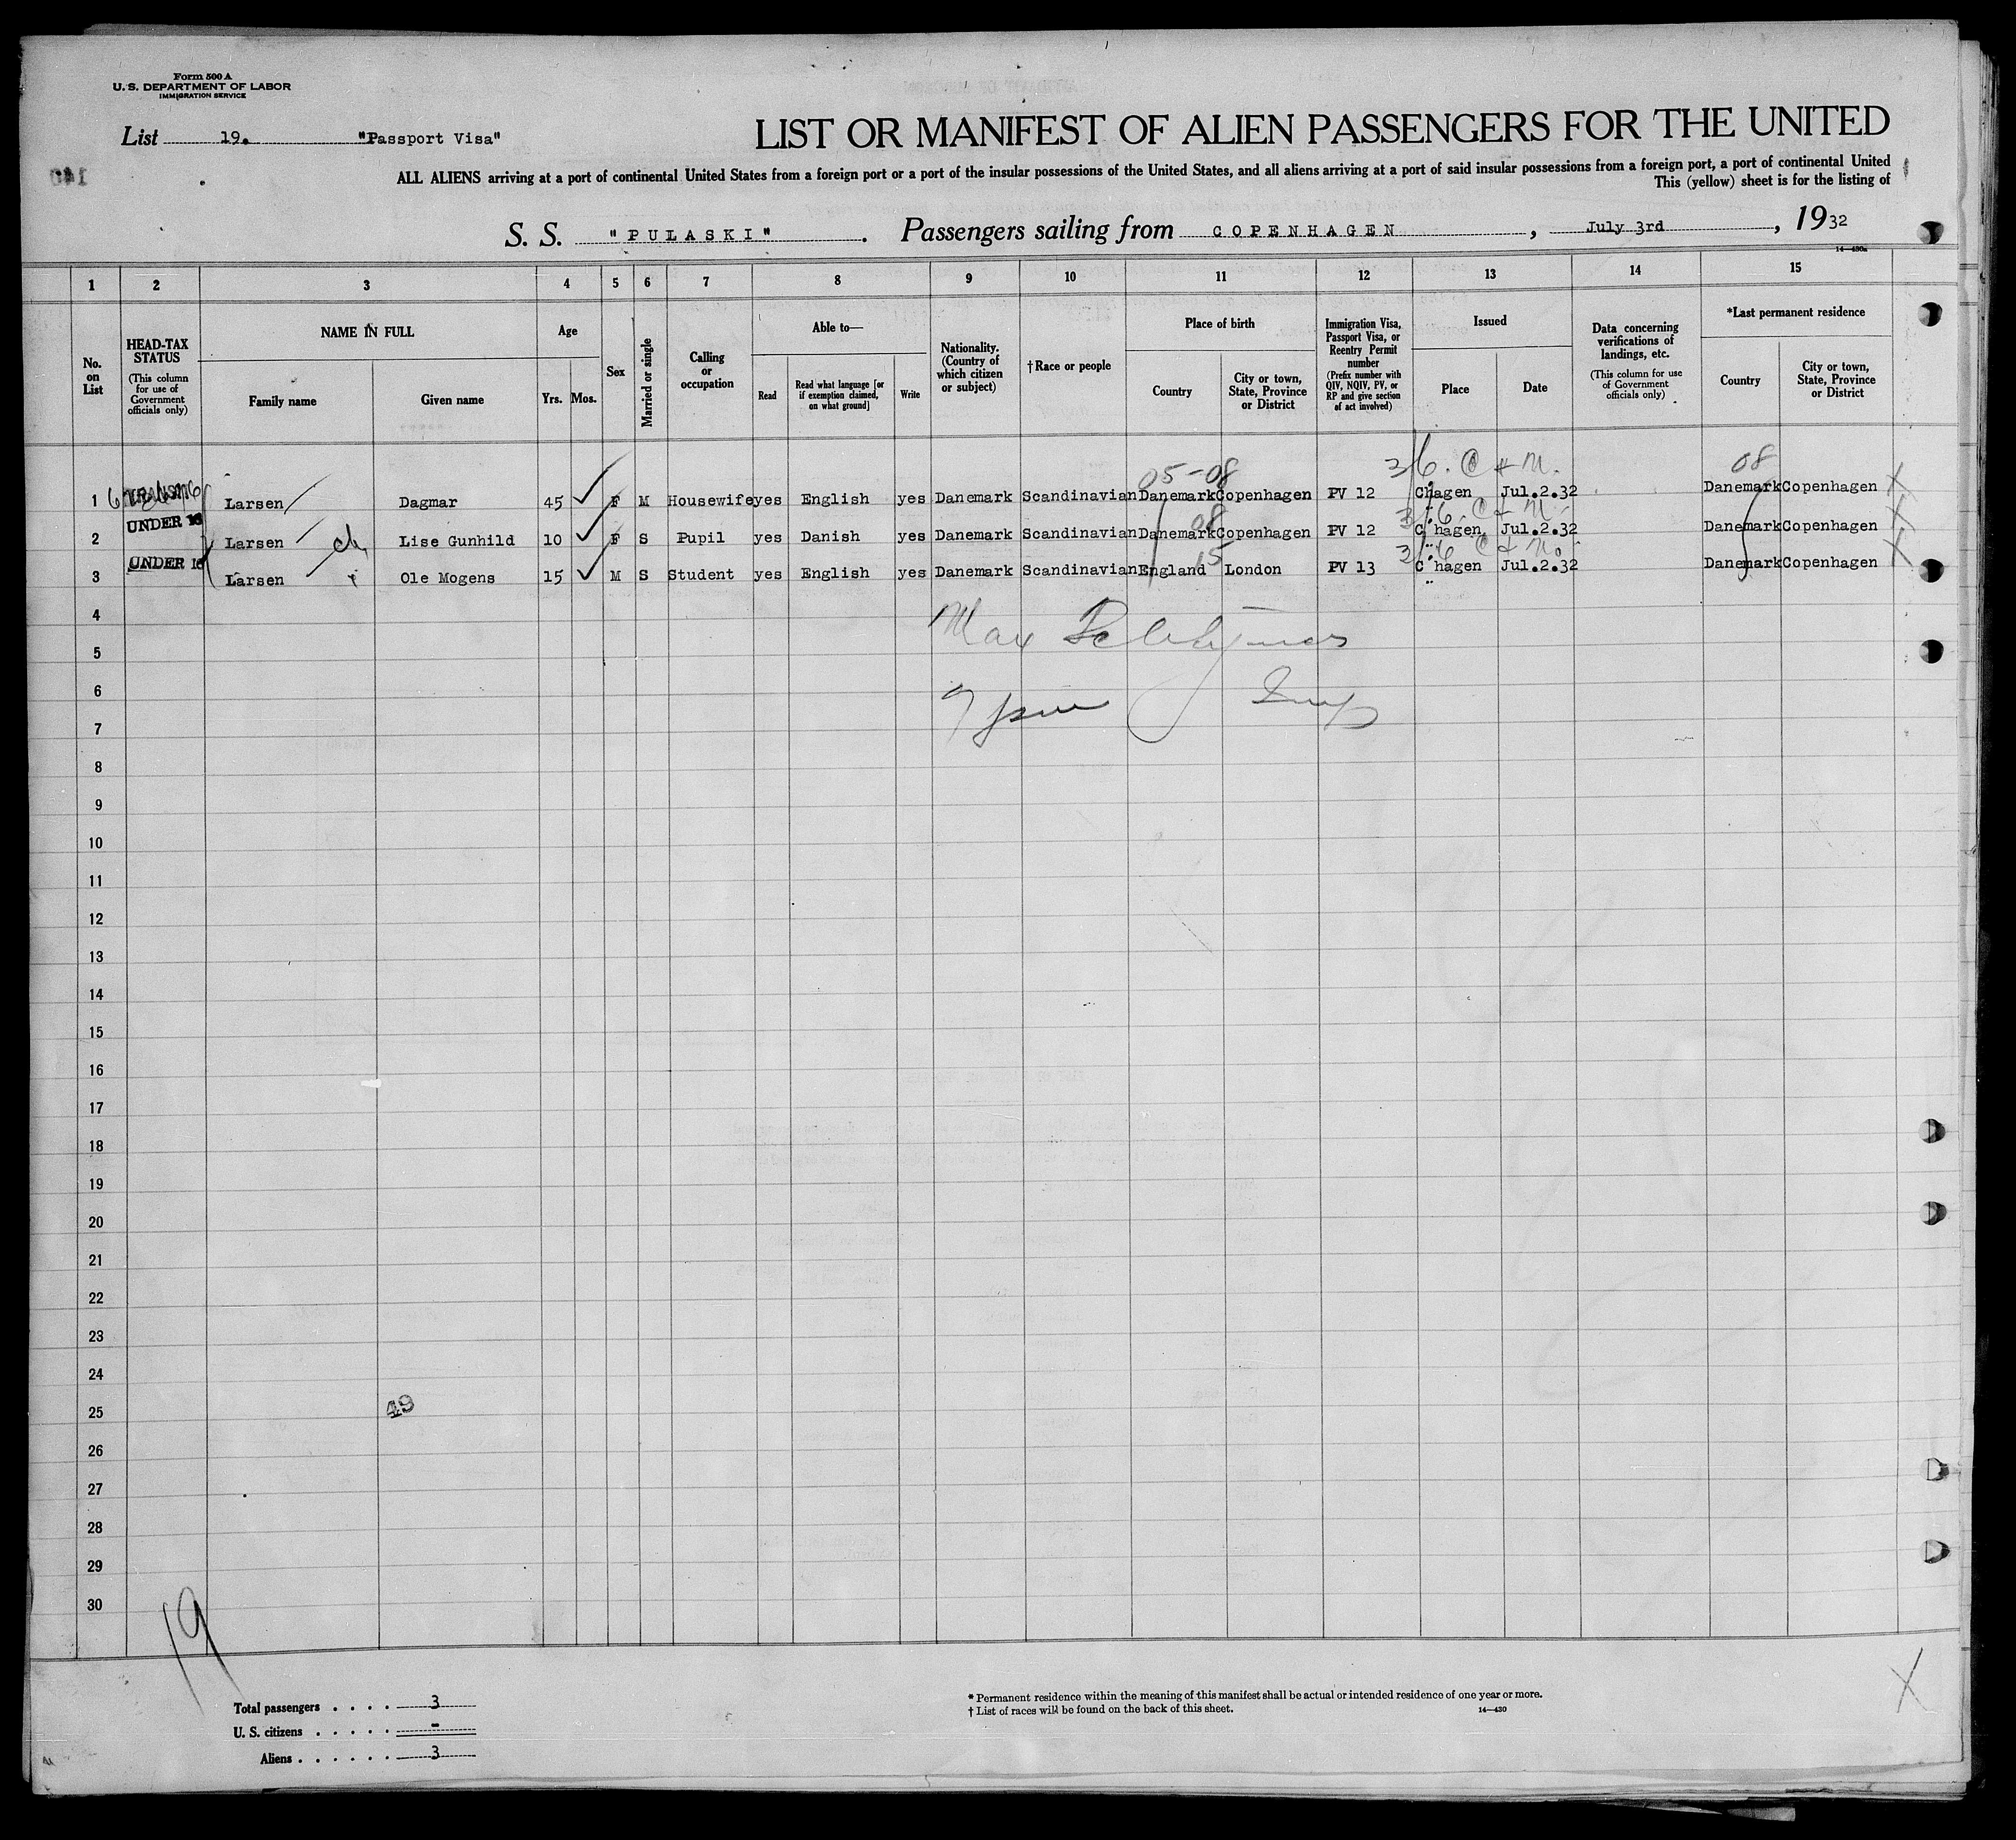 Form 500 A
U. S. DEPARTMENT OF LABOR
IMMIGRATION SERVICE
List 19. "Passport Visa"
LIST OR MANIFEST OF ALIEN PASSENGERS FOR THE UNITED
ALL ALIENS arriving at a port of continental United States from a foreign port or a port of the insular possessions of the United States, and all aliens arriving at a port of said insular possessions from a foreign port, a port of continental United
This (yellow) sheet is for the listing of
140
S. S. "PULASKI". Passengers sailing from COPENHAGEN, July 3rd, 1932
14—430a
1 2 3 4 5 6 7 8 9 10 11 12 13 14 15
No. on List
HEAD-TAX STATUS
(This column for use of Government officials only)
NAME IN FULL
Family name
Given name
Age
Yrs. Mos.
Sex
Married or single
Calling or occupation
Able to—
Read
Read what language [or if exemption claimed, on what ground]
Write
Nationality. (Country of which citizen or subject)
†Race or people
Place of birth
Country
City or town, State, Province or District
Immigration Visa, Passport Visa, or Reentry Permit number
(Prefix number with QIV, NQIV, PV, or RP and give section of act involved)
Issued
Place
Date
Data concerning verifications of landings, etc.
(This column for use of Government officials only)
*Last permanent residence
Country
City or town, State, Province or District
05-08 3/6. C & M. 08
1 Larsen Dagmar 45 F M Housewife yes English yes Danemark Scandinavian Danemark Copenhagen PV 12 C hagen Jul.2.32 Danemark Copenhagen X
UNDER 16 08 3/6. C & M.
2 Larsen ch Lise Gunhild 10 F S Pupil yes Danish yes Danemark Scandinavian Danemark Copenhagen PV 12 C hagen Jul.2.32 Danemark Copenhagen X
UNDER 16 15 3/6 C & M.
3 Larsen Ole Mogens 15 M S Student yes English yes Danemark Scandinavian England London PV 13 C hagen Jul.2.32 Danemark Copenhagen X
4
Max
5
6
7
8
9
10
11
12
13
14
15
16
17
18
19
20
21
22
23
24
25 49
26
27
28
29
30
19
Total passengers . . . . 3
U. S. citizens . . . . . -
Aliens . . . . . . 3
* Permanent residence within the meaning of this manifest shall be actual or intended residence of one year or more.
† List of races will be found on the back of this sheet.
14—430
X